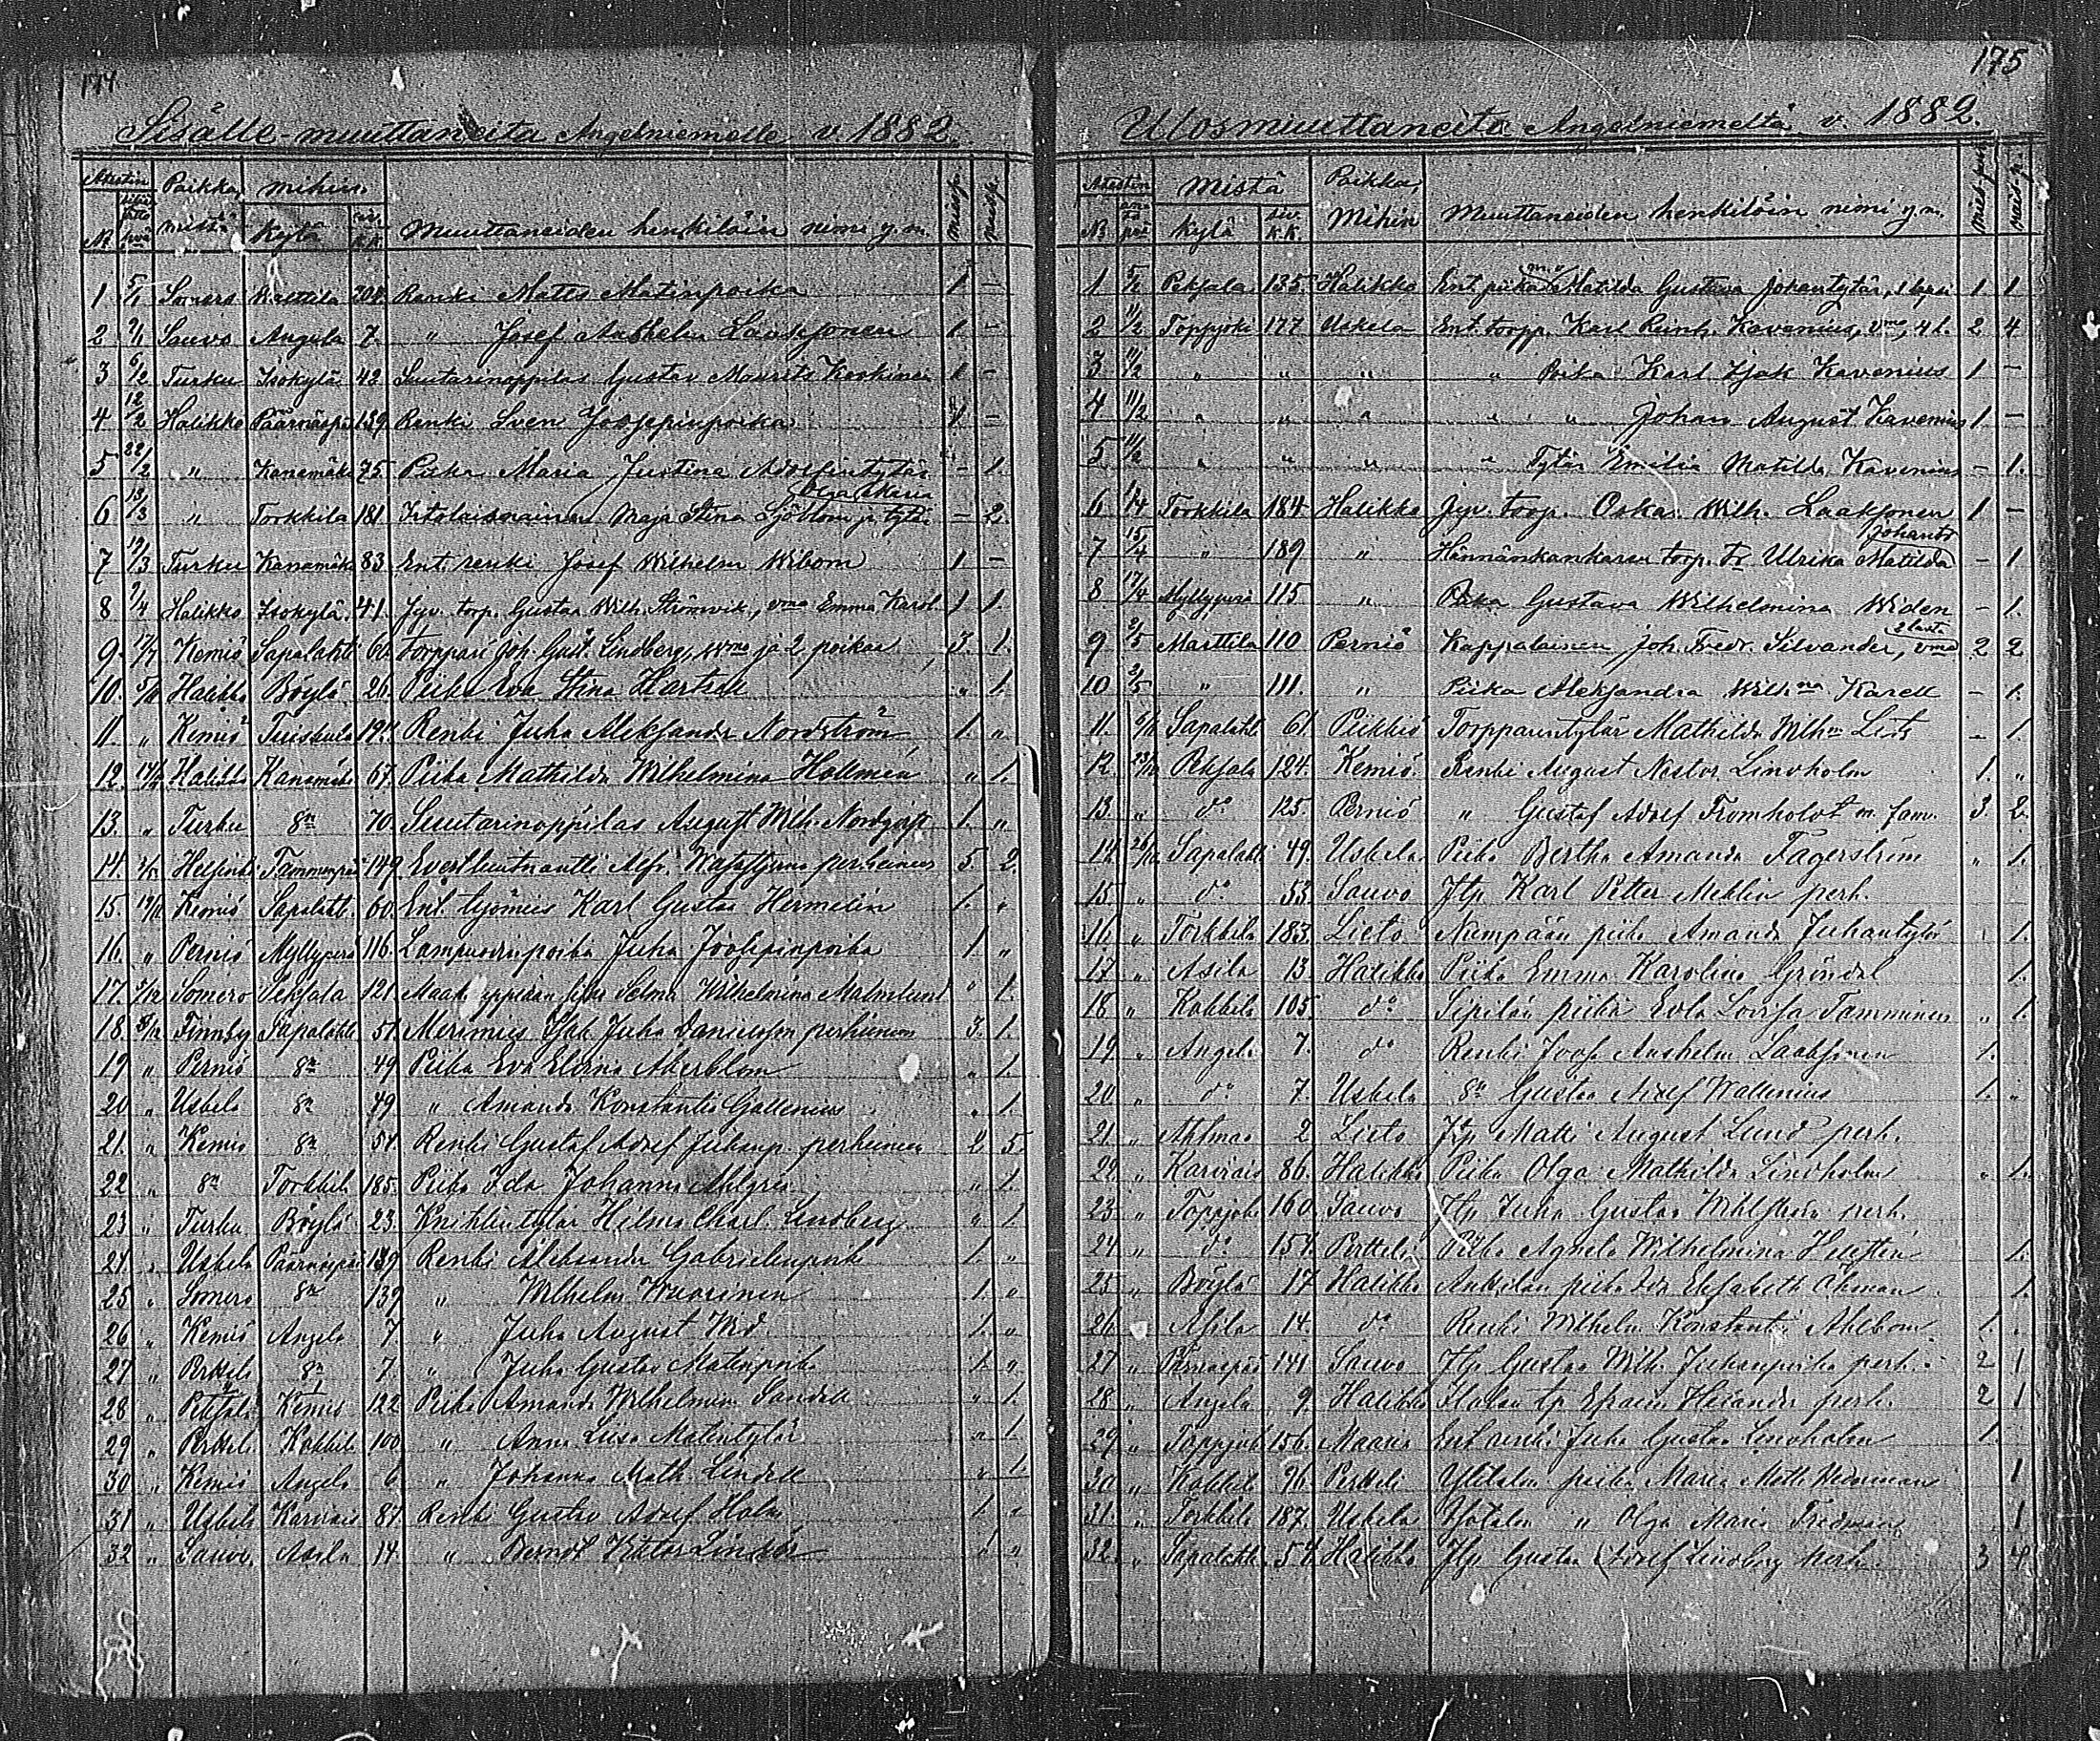 174
Sisälle-muuttaneita Angelniemelle v. 1882.
Atestin Paikka, mihin.
N mistä kylä siv. k.k. Muuttaneiden henkilöin nimi y.m. miesp. naisp.
1 5/1 Somero Marttila 204 Renki Matts Matinpoika 1 –
2 7/1 Sauvo Angela 7. " Josef Anshelm Laaksonen 1. –
3 6/2 Turku Isokylä 42 Suutarinoppilas Gustav Maurits Koskinen 1 –
4 12/2 Halikko Päärnäspää 139 Renki Sven Joosepinpoika 1 –
5 22/2 " Kanamäki 75 Piika Maria Justina Adolfintytär – 1
Olga Maria
6 13/3 " Torkkila 181 Itislaisnainen Maja Stina Sjöblom ja tytär – 2.
7 19/3 Turku Kanamäki 83 Ent. renki Josef Wilhelm Wibom 1 –
8 7/4 Halikko Isokylä. 41. Jyv. torp. Gustaa Wilh. Strömvik, vmo Emma Karol. 1 1.
9. 17/7 Kemiö Sapalahti 60. Torppari Joh. Gust. Lindberg, vmo ja 2 poikaa 3. 1.
10. Halikko Böylä 26. Piika Eva Stina Hartzell " 1.
11. " Kemiö Tuiskula 194. Renki Juha Aleksander Nordström 1. "
12. Halikko Kanamäki 67. Piika Mathilda Wilhelmina Hollmén " 1.
13. " Turku 8n 70. Suutarinoppilas August Wilh. Nordqvist 1. "
14. Helsinki 149. Everstiluutnantti Alfr. perheineen 5. 2.
15. Kemiö Sapalahti 60. Ent. työmies Karl Gustaa Hermelin 1. "
16. " Perniö Myllyperä 116. Lampuodinpoika Juha Joosepinpoika 1 "
17. 5/12 Somero Peksala 121. Selma Wilhelmina Malmlund " 1.
18. Finnby Sapalahti 51. Merimies Isak Juha Danielson perheineen 3. 1.
19 " Perniö 8n 49 Piika Eva Elvina Åkerblom " 1.
20 " Uskela 8n 49 " Amanda Konstantia Gallenius " 1.
21. " Kemiö 8n 54. Renki Gustaf Adolf Juhanp. perheineen 2 5.
22 " 8n Torkkila 185. Piika Ida Johanna Ahlgrén " 1.
23 " Turku Böylä 23. Knihtintytär Hilma Charl. Lindberg " 1.
24. " Uskela Päärnäspää 139 Renki Aleksander Gabrielinpoika 1. "
25 " Somero 8n 139 " Wilhelm Wuorinen 1. "
26 " Kemiö Angela 7 " Juha August Wid. 1. "
27 " Perttele 8n 7. " Juha Gustav Matinpoika 1. "
28 " Peksala Kemiö 122 Piika Amanda Wilhelmina Sandell " 1.
29 " Perttele Kokkila 100 " Anna Liisa Matintytär " 1.
30 " Kemiö Angela 6. " Johanna Math. Lindell " 1.
31 " Uskela Karviais 87 Renki Gustav Adolf Holm 1. "
32 " Sauvo Asila 14. " Berndt Viktor Lindén 1. "
175
Ulosmuuttaneita Angelniemeltä v. 1882.
Atestin Mistä Paikka, Mihin
N kylä siv. k.k. Muuttaneiden henkilöin nimi y.m. miesp. naisp.
1 Peksala 135 Halikko Ent. piika Matilda Gustava Johantytär, 1 lapsi 1 1
2 11/2 Töppjoki 177 Uskela Ent. torpp. Karl Reinh. Kavenius, vmo, 4 l. 2 4
3 11/2 " " " " Poika Karl Isak Kavenius 1 –
4 11/2 " " " " " Johan August Kavenius 1. –
5 11/2 " " " " Tytär Emilia Matilda Kavenius – 1.
6 1/4 Torkkila 184 Halikko Jyv. torp. Oskar Wilh. Laaksonen 1 –
Johantr
7 15/4 " 189 " Hännänkankaren torp. tr Ulrika Matilda – 1
8 17/4 Myllyperä 115 " Piika Gustava Wilhelmina Widen – 1.
2 lasta
9 2/5 Marttila 110 Perniö Kappalainen Joh. Fredr. Silvander, vmo 2 2
10 2/5 " 111. " Piika Aleksandra Wilhna Karell – 1.
11. Sapalahti 61 Piikkiö Torpparintytär Mathilda Wilhna – 1
12. Peksala 124. Kemiö. Renki August Nestor Lindholm 1. "
13. " do 125. Perniö " Gustaf Adolf Fromholdt m. fam. 3. 2.
14. Sapalahti 49. Uskela Piika Bertha Amanda Fagerström " 1.
15. " do 53. Sauvo Itp. Karl Petter Meklin perh.
16 " Torkkila 183. Lieto Numpään piika Amanda Juhantytär 1.
17 " Asila 13. Halikko Piika Emma Karolina Gröndal 1.
18 " Kokkila 105. do Sipilän piika Eva Lovisa Tamminen " 1.
19. " Angela 7. do Renki Josef Anshelm Laaksonen 1.
20 " do 7. Uskela 8n Gustaa Adolf Wallenius 1. "
21 " Ahlmao 2 Lieto Itp Matti August Lund perh.
22. " Karviais 86. Halikko Piika Olga Mathilda Lindholm " 1.
23. " Töppjoki 160 Sauvo Itp Juha Gustaa perh.
24 " do 154. Perttele Piika Agnela Wilhelmina 1.
25 " Böylä 17 Halikko Anttilan piika Ida Elisabeth Öhman 1.
26 " Asila 14. do Renki Wilhelm Konstanti Ahlbom 1.
27 " Päärnäspää 141 Sauvo Itp Gustaa Wilh. Juhanpoika perh. 2 1
28 " Angela 9. Halikko tp. Efraim Helander perh. 2 1
29 " Töppjoki 156. Maaria Ent. renki Juha Gustaa Lindholm 1.
30 " Kokkila 96. Perttele Ylitalon piika Maria Math. 1
31. " Torkkila 187. Uskela " Olga Maria Fredman 1
32. " Sapalahti 54 Halikko Itp Gustaa Adolf Lindberg perh. 3 4